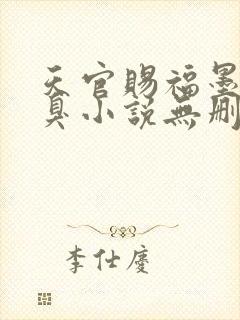 天官賜福墨
臭小説無刪
李仕慶